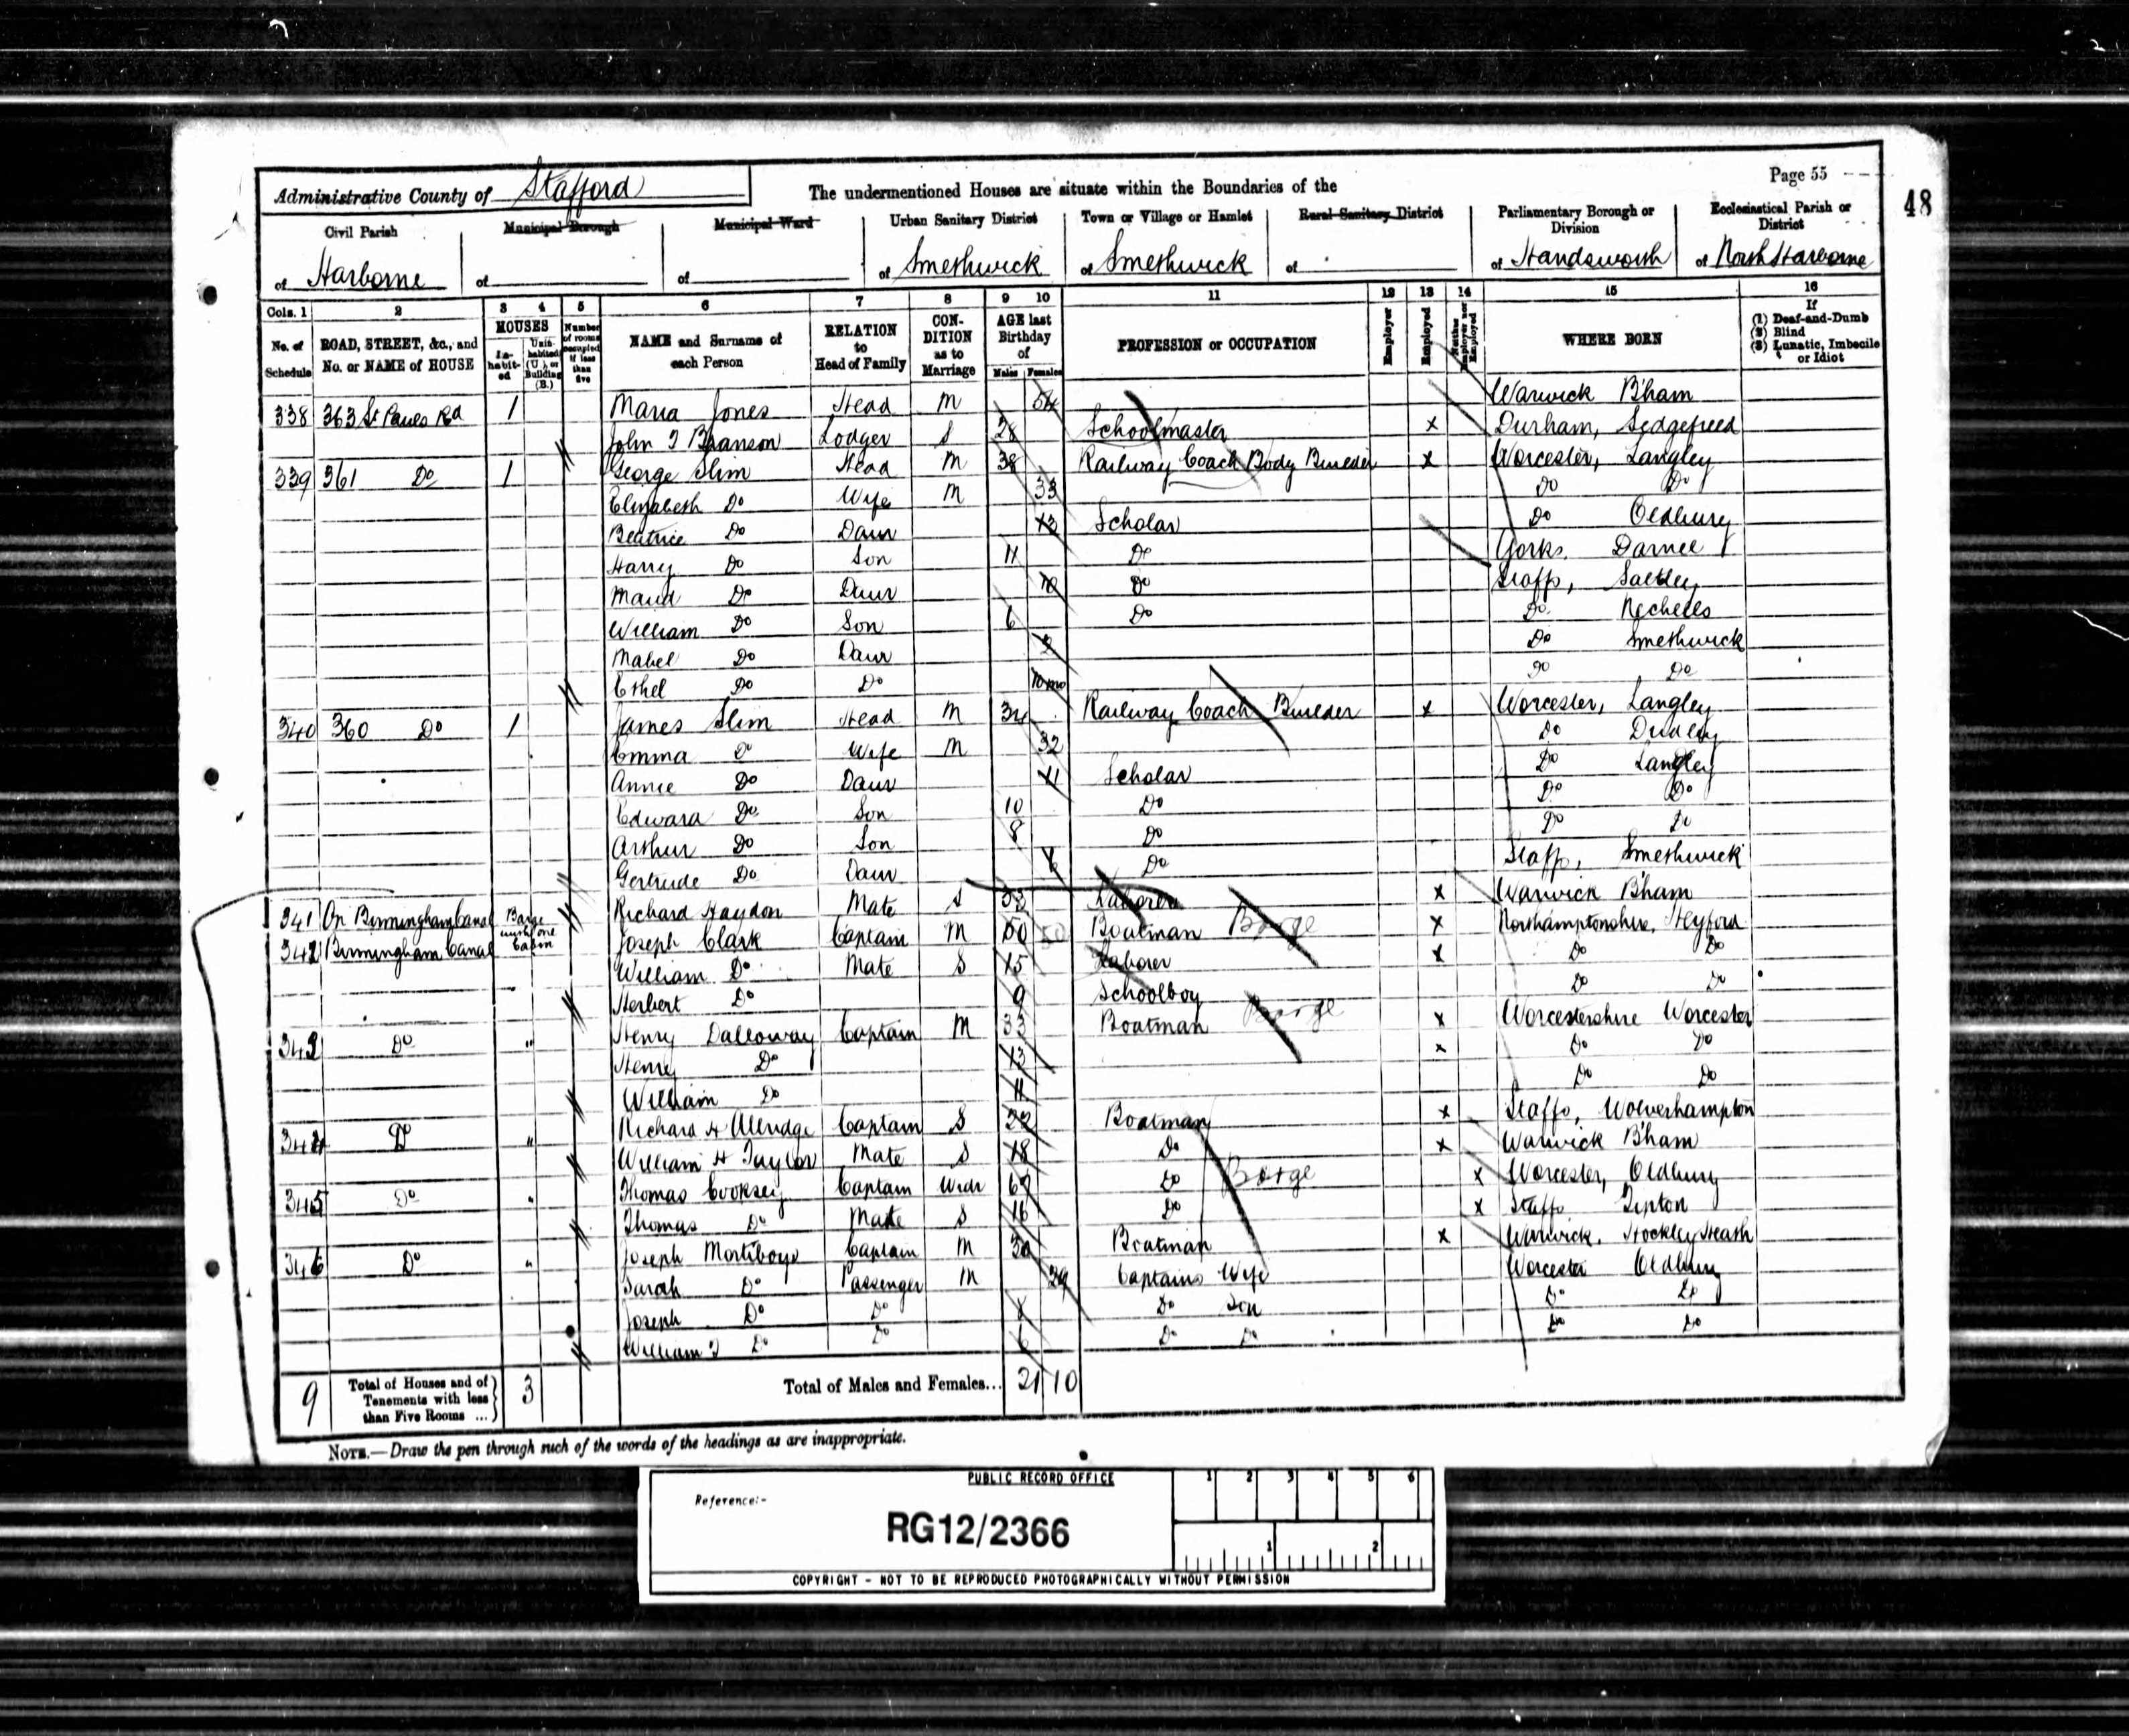 Page 55
48
Administrative County of Stafford The undermentioned Houses are situate within the Boundaries of the
Civil Parish Municipal Borough Municipal Ward Urban Sanitary District Town or Village or Hamlet Rural Sanitary District Parliamentary Borough or Division Ecclesiastical Parish or District
of Harborne of of of Smethwick of Smethwick of of Handsworth of North Harborne
Cols. 1 2 3 4 5 6 7 8 9 10 11 12 13 14 15 16
No. of Schedule ROAD, STREET, &c., and No. or NAME of HOUSE HOUSES In-habit-ed Unin-habited (U.), or Building (B.) Number of rooms occupied if less than five NAME and Surname of each Person RELATION to Head of Family CON-DITION as to Marriage AGE last Birthday of Males Females PROFESSION or OCCUPATION Employer Employed Neither Employer nor Employed WHERE BORN If (1) Deaf-and-Dumb (2) Blind (3) Lunatic, Imbecile or Idiot
338 363 St Pauls Rd 1 Maria Jones Head M 54 Warwick B'ham
John T Branson Lodger S 28 Schoolmaster x Durham, Sedgefield
339 361 Do 1 George Slim Head M 38 Railway Coach Body Builder x Worcester, Langley
Elizabeth Do Wife M 33 Do Do
Beatrice Do Daur 13 Scholar Do Oldbury
Harry Do Son 11 Do Yorks,
Maud Do Daur 10 Do Staffs, Saltley
William Do Son 6 Do Do Nechells
Mabel Do Daur 2 Do Smethwick
Ethel Do Do 10 mo Do Do
340 360 Do 1 James Slim Head M 34 Railway Coach Builder x Worcester, Langley
Emma Do Wife M 32 Do Dudley
Annie Do Daur 11 Scholar Do Langley
Edward Do Son 10 Do Do Do
Arthur Do Son 8 Do Do Do
Gertrude Do Daur Do Staffs, Smethwick
341 On Birmingham Canal Barge with one Cabin Richard Haydon Mate S Laborer x Warwick B'ham
342 Birmingham Canal Joseph Clark Captain M 50 50 Boatman Barge x Northamptonshire, Heyford
William Do Mate S 15 Laborer x Do Do
Herbert Do 9 Schoolboy Do Do
343 Do " Henry Dalloway Captain M 33 Boatman Barge x Worcestershire Worcester
Henry Do 13 x Do Do
William Do 11 Do Do
344 Do " Richard H Captain S 22 Boatman x Staffs, Wolverhampton
William H Taylor Mate S 18 Do x Warwick B'ham
345 Do " Thomas Cooksey Captain Widr Do Barge x Worcester, Oldbury
Thomas Do Mate S 16 Do x Staffs Tipton
346 Do " Joseph Mortiboys Captain M 30 Boatman x Warwick, Hockley Heath
Sarah Do Passenger M 29 Captains Wife Worcester Oldbury
Joseph Do Do Do Son Do Do
William T Do Do 6 Do Do Do Do
9 Total of Houses and of Tenements with less than Five Rooms ... 3 Total of Males and Females... 21 10
NOTE.—Draw the pen through such of the words of the headings as are inappropriate.
PUBLIC RECORD OFFICE
1 2 3 4 5 6
Reference:-
RG12/2366
1 2
COPYRIGHT - NOT TO BE REPRODUCED PHOTOGRAPHICALLY WITHOUT PERMISSION